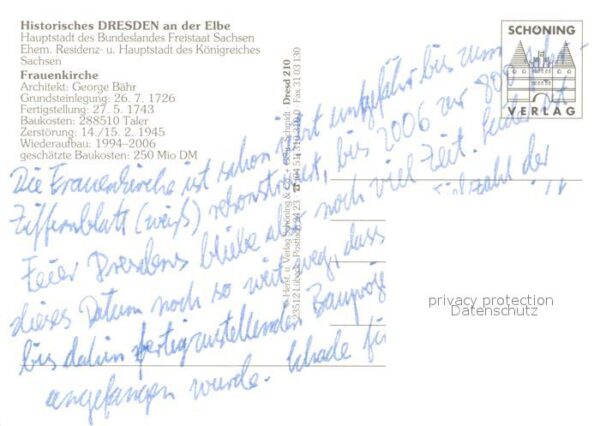 Historisches DRESDEN an der Elbe
Hauptstadt des Bundeslandes Freistaat Sachsen
Ehem. Residenz- u. Hauptstadt des Königreiches
Sachsen
Frauenkirche
Architekt: George Bähr
Grundsteinlegung: 26. 7. 1726
Fertigstellung: 27. 5. 1743
Baukosten: 288510 Taler
Zerstörung: 14./15. 2. 1945
Wiederaufbau: 1994–2006
geschätzte Baukosten: 250 Mio DM
SCHÖNING
VERLAG
Dresd 210
Die Frauenkirche ist schon jetzt ungefähr bis zum
Ziffernblatt (weiß) rekonstruiert, bis 2006 zur 800
Feier Dresdens bliebe also noch viel Zeit. Leider ist
dieses Datum noch so weit weg, dass Vielzahl der
bis dahin fertigzustellenden Bauproje
angefangen wurde. Schade für
privacy protection
Datenschutz